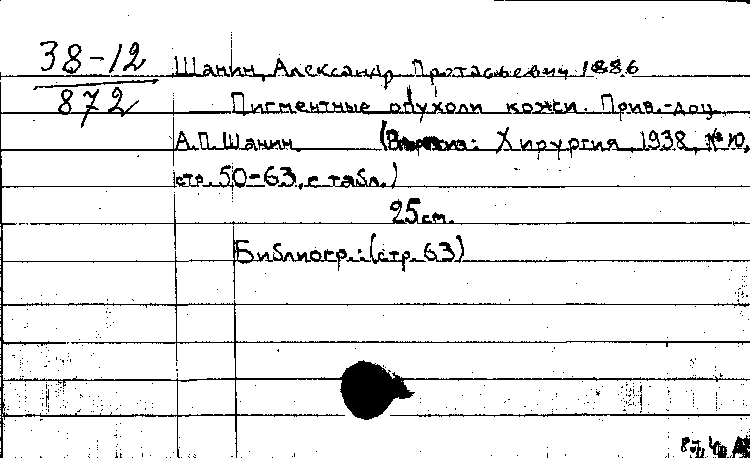 38-12
872
Шанин, Александр Протасьевич 1886
Пигментные опухоли кожи. Прив.-доц.
А.П. Шанин. Хирургия, 1938, № 10,
стр. 50-63, с табл.)
25 см.
Библиогр.: (стр. 63)